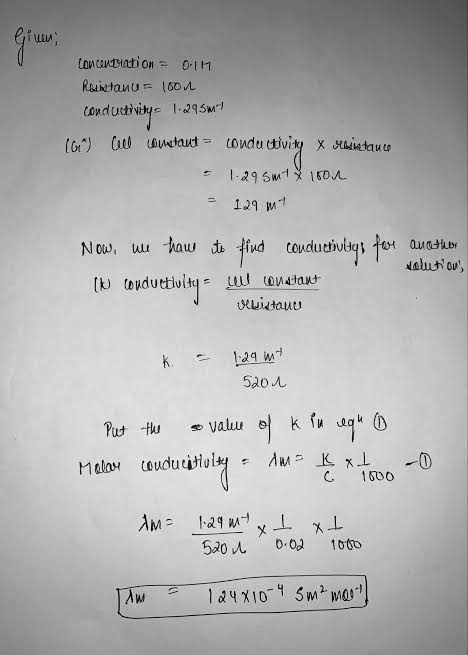 Given;
Concentration = 0.1M
Resistance = 100Ω
conductivity = 1.29 Sm⁻¹
(G*) Cell constant = conductivity × resistance
= 1.29 Sm⁻¹ × 100Ω
= 129 m⁻¹
Now, we have to find conductivity for another solution,
(K) conductivity = cell constant / resistance
K = 1.29 m⁻¹ / 520Ω
Put the value of K in eqⁿ ①
Molar conductivity = λm = K/C × 1/1000 -①
λm = 1.29 m⁻¹ / 520Ω × 1/0.02 × 1/1000
λm = 124×10⁻⁴ Sm² mol⁻¹